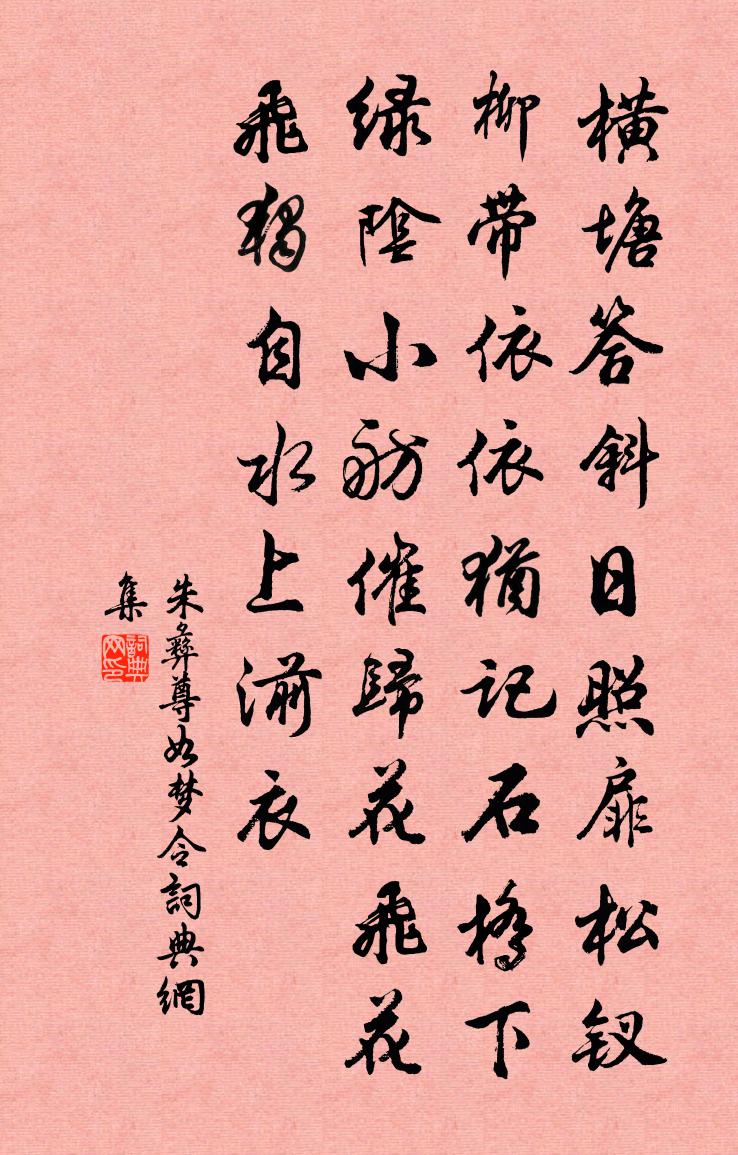 横塘答斜日照扉松钗
柳带依依犹记石桥下
绿阴小舫催歸花飛花
飛独自水上湔衣
朱彝尊如梦令詞典網
集
詞典网印